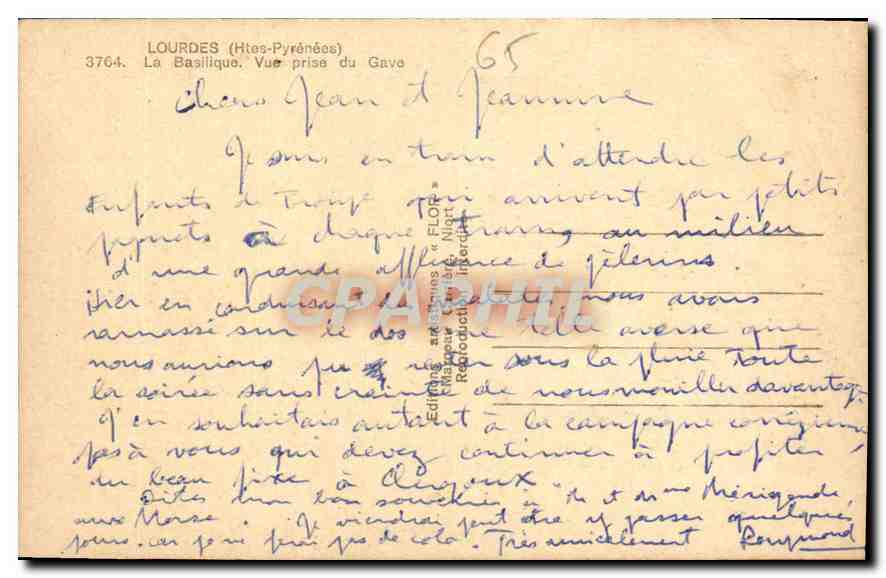 LOURDES (Htes-Pyrénées)
3764. La Basilique. Vue prise du Gave
65
Chers Jean et Jeannine
Je suis en train d'attendre les
Enfants de Troupe qui arrivent par petits
paquets à chaque train, au milieu
d'une grande affluence de pèlerins.
Hier en conduisant des malades nous avons
ramassé sur le dos une telle averse que
nous aurions pu rester sous la pluie toute
la soirée sans crainte de nous mouiller davantage.
J'en souhaitais autant à la campagne corrézienne
pas à vous qui devez continuer à profiter
du beau fixe à Clergoux
Dites mon bon souvenir à Mr et Mme Mérigonde,
aux Morse. Je viendrai peut être y passer quelques
jours car je ne ferai pas de colo. Très amicalement Raymond
Editions artistiques « FLOR »
Margeau Carrière, Niort
Reproduction interdite
CPAPHIL